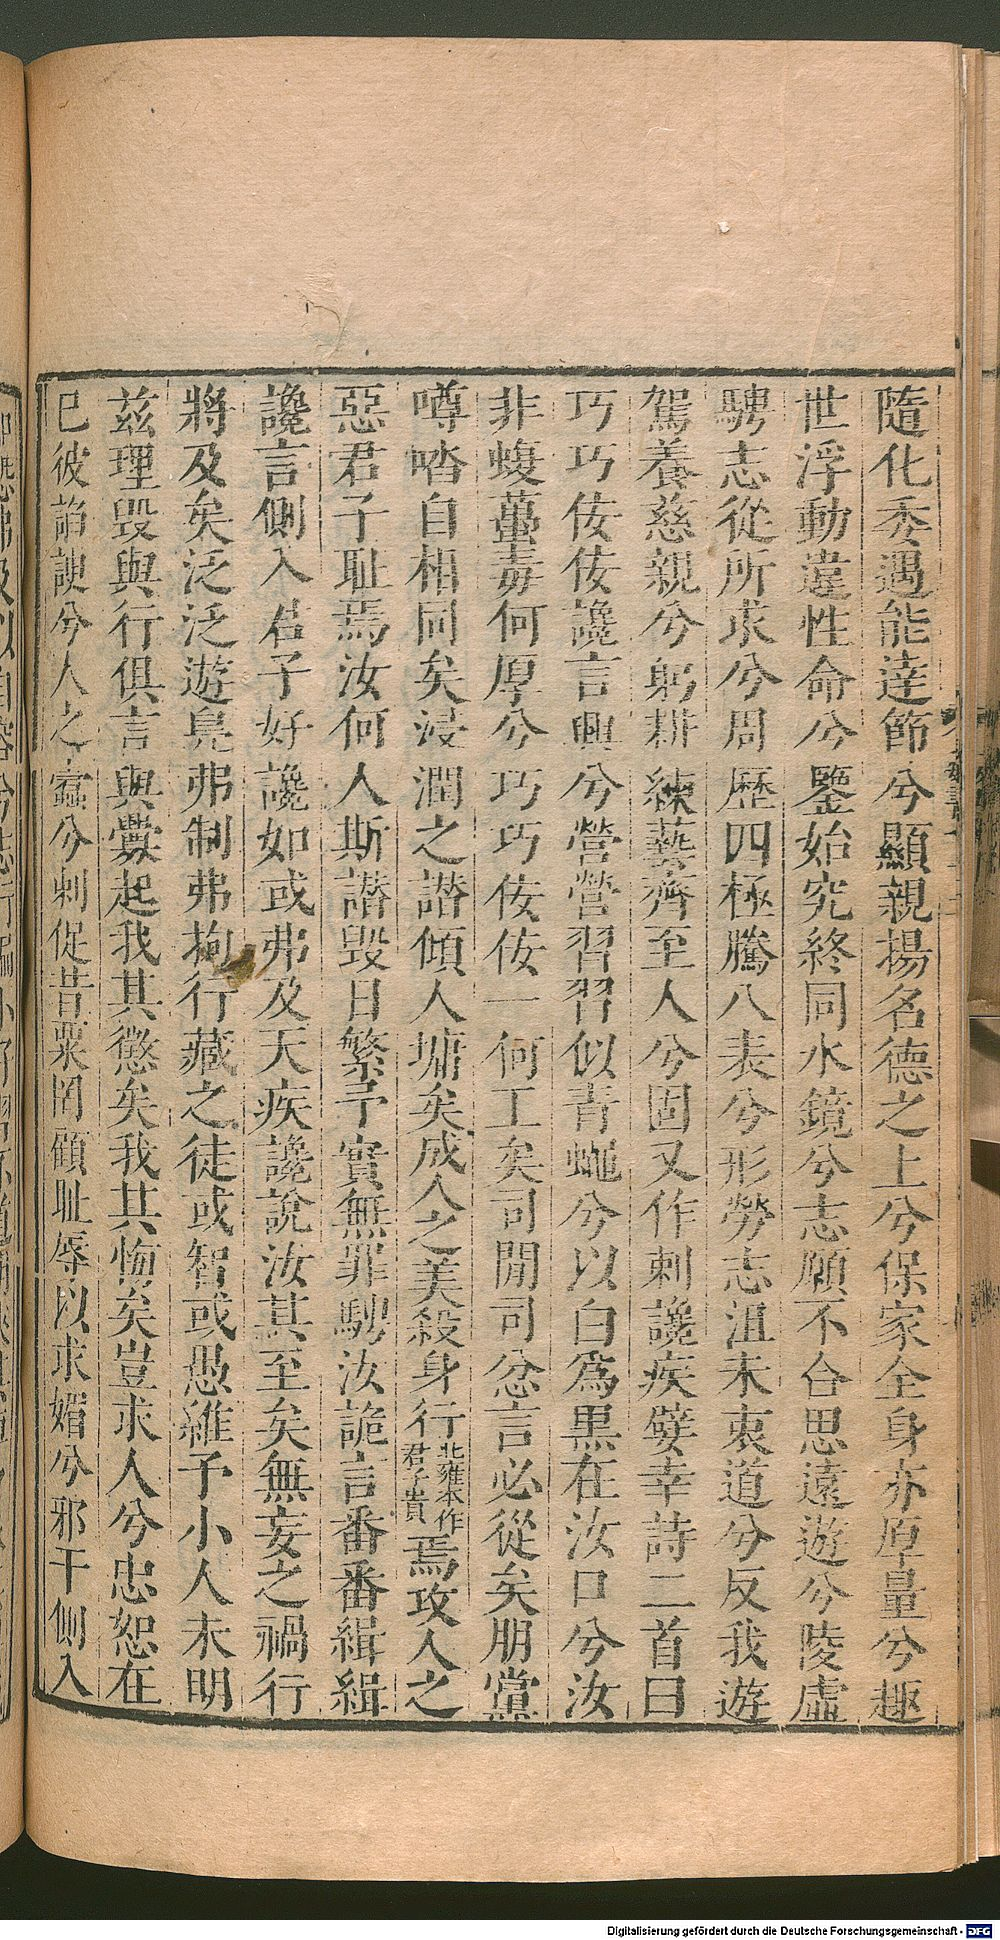 隨化秀遇能達節兮顯親揚名德之上兮保家全身亦厚量兮趣
世浮動違性命兮鑒始究終同水鏡兮志願不合思遠遊兮陵虛
騁志從所求兮周歷四極騰八表兮形勞志沮未衷道兮反我遊
駕養慈親兮躬耕練藝齊至人兮固又作刺讒疾嬖幸詩二首曰
巧巧佞佞讒言興兮營營習習似青蠅兮以白為黑在汝口兮汝
非蝮蠆毒何厚兮巧巧佞佞一何工矣司間司忿言必從矣朋黨
噂喈自相同矣浸潤之譖傾人墉矣成人之美殺身行北雍本作君子貴焉攻人之
惡君子恥焉汝何人斯譖毀日繁予實無罪騁汝詭言番番緝緝
讒言側入君子好讒如或弗及天疾讒說汝其至矣無妄之禍行
將及矣泛泛遊鳧弗制弗拘行藏之徒或智或愚維予小人未明
茲理毀與行俱言與釁起我其懲矣我其悔矣豈求人兮忠恕在
已彼諂諛兮人之蠹兮刺促昔粟罔顧恥辱以求媚兮邪干側入
Digitalisierung gefördert durch die Deutsche Forschungsgemeinschaft - DFG